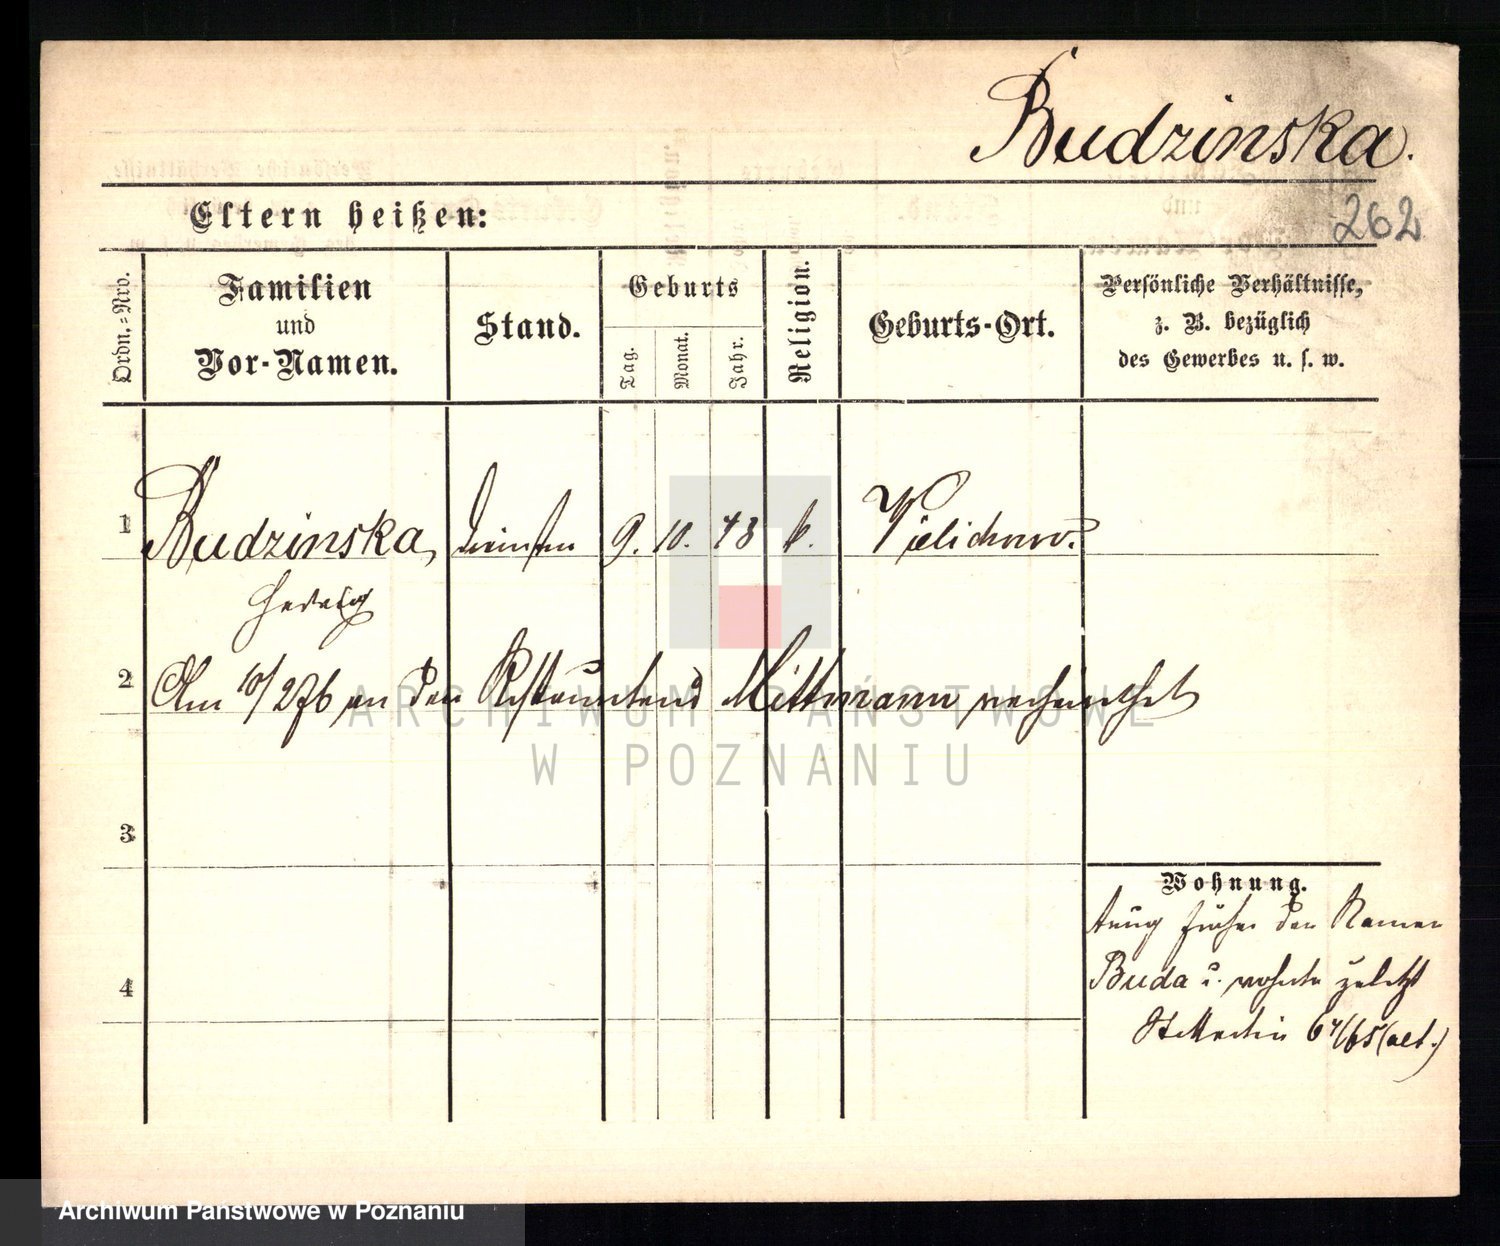 Budzinska.
262
Eltern heißen:
Ordn.-Nro.
Familien
und
Vor-Namen.
Stand.
Geburts
Tag.
Monat.
Jahr.
Religion.
Geburts-Ort.
Persönliche Verhältnisse,
z. B. bezüglich
des Gewerbes u. s. w.
1 Budzinska, 9. 10. 43 k. Wielichowo.
Hedwig
2 Am 10/2 76 an den Restaurateur Mittmann verheirathet
ARCHIWUM PAŃSTWOWE
W POZNANIU
3
Wohnung.
trug früher den Namen
Buda u. wohnte zuletzt
St Martin 64/65 (alt.)
4
Archiwum Państwowe w Poznaniu